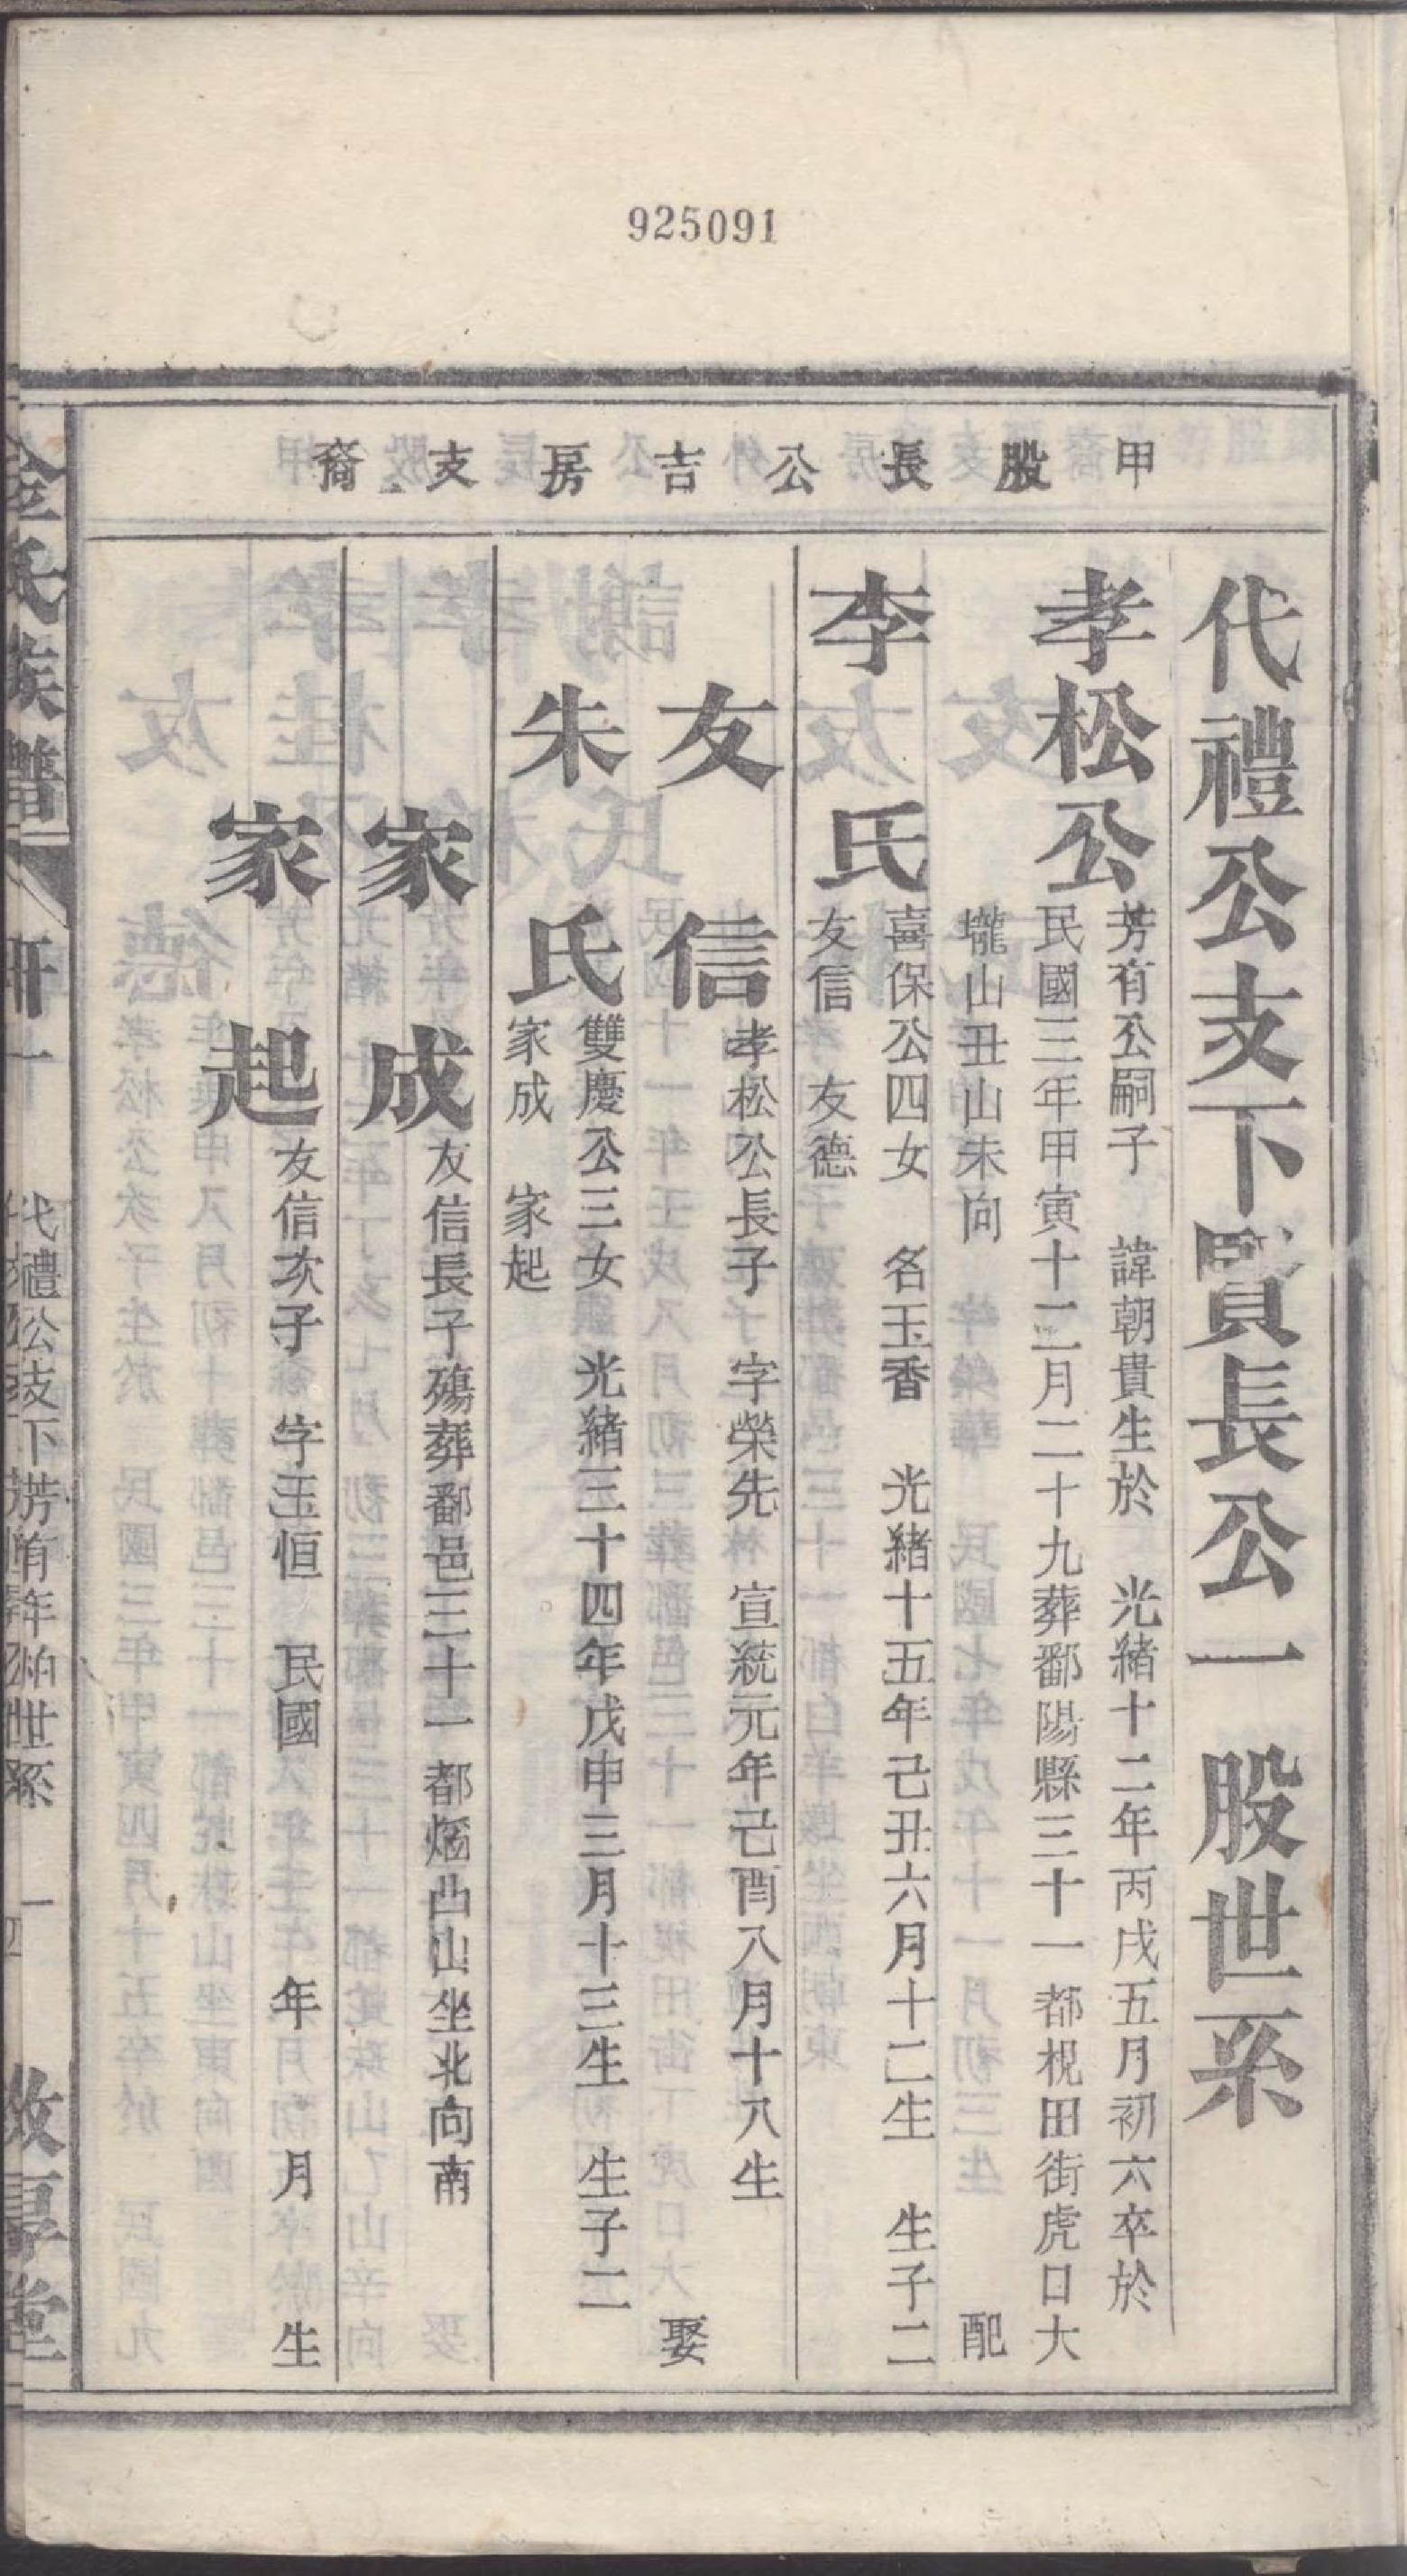 925091
甲股長公吉房支裔
代禮公支下賢長公一股世系
孝松公
芳有公嗣子 諱朝貴生於 光緒十二年丙戌五月初六卒於
民國三年甲寅十二月二十九葬鄱陽縣三十一都梘田街虎口大
壠山丑山未向 配
李氏
喜保公四女 名玉香 光緒十五年己丑六月十二生 生子二
友信 友德
友信
孝松公長子 字榮先 宣統元年己酉八月十八生
娶
朱氏
雙慶公三女 光緒三十四年戊申三月十三生 生子二
家成 家起
家成
友信長子殤葬鄱邑三十一都凸山坐北向南
家起
友信次子 字玉恒 民國 年 月 生
氏族譜
代禮公支下芳有年柏世系
堂